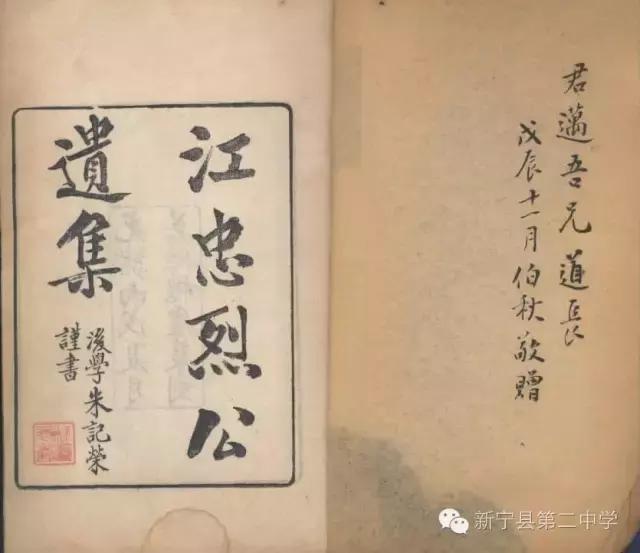 君邁吾兄道長
戊辰十一月伯秋敬贈
江忠烈公
遺集
後學朱記榮
謹書
新宁县第二中学